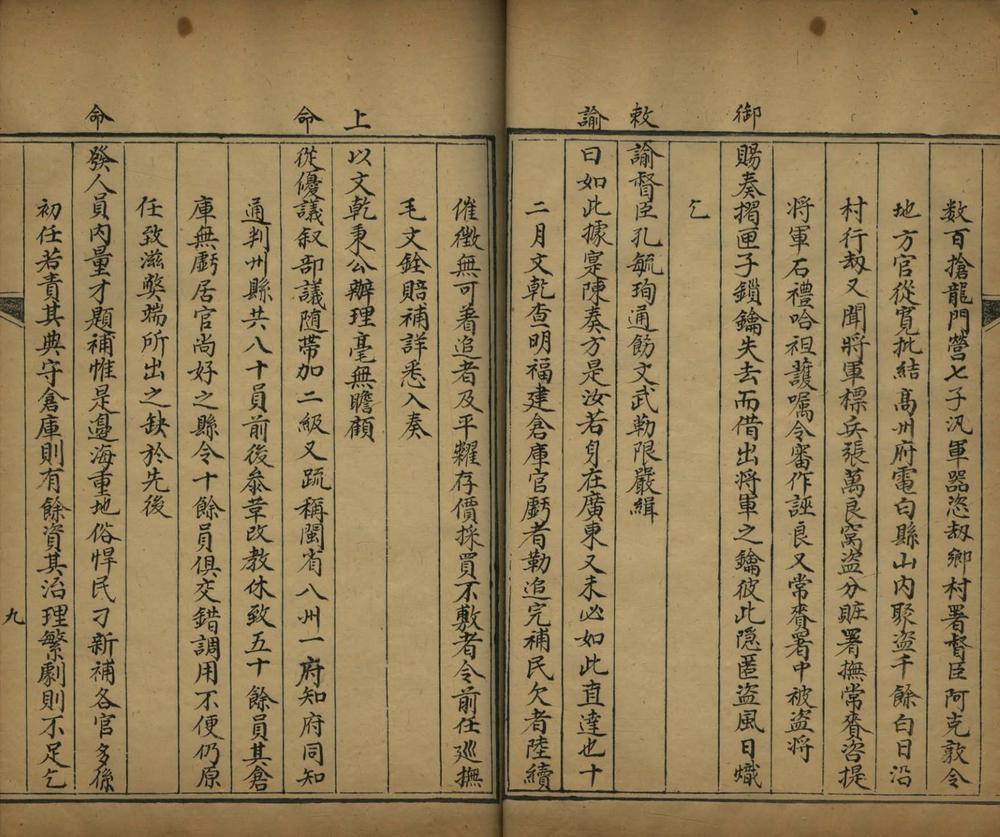 数百搶龍門營七子汛軍器恣刼鄉村署督臣阿克敦令
地方官從寬批結高州府電白縣山内聚盗千餘白日沿
村行刼又聞將軍標兵張萬良窩盗分賍署撫常賚咨提
將軍石禮哈袒護嘱令審作誣良又常賚署中被盗將
御
賜奏摺匣子鎖鑰失去而借出將軍之鑰彼此隐匿盗風日熾
乞
敕
諭督臣孔毓珣通飭文武勒限嚴緝
諭
曰如此據寔陳奏方是汝若身在廣東又未必如此直達也十
二月文乾查明福建倉庫官虧者勒追完補民欠者陸續
催徵無可着追者及平糶存價採買不敷者令前任廵撫
毛文銓賠補詳悉入奏
上
以文乾秉公辦理毫無瞻顧
命
從優議叙部議随帶加二級又疏稱閩省八州一府知府同知
通判州縣共八十員前後叅革改教休致五十餘員其倉
庫無虧居官尚好之縣令十餘員俱交錯調用不便仍原
任致滋獘端所出之缺於先後
命
發人員内量才題補惟是邉海重地俗悍民刁新補各官多係
初任若責其典守倉庫則有餘資其治理繁劇則不足乞
九